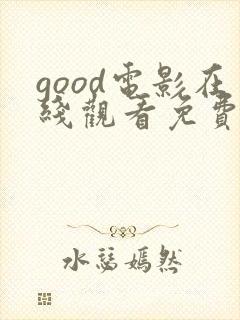 good電影在
綫觀看免費
水慫嫣然